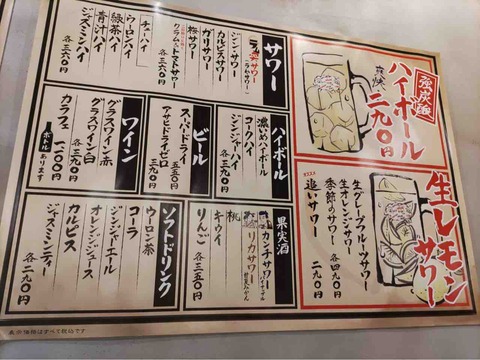 強炭酸
ハイボール
二九〇円
生レモンサワー
生グレープフルーツサワー
生オレンジサワー
季節のサワー
各四九〇円
追いサワー
二九〇円
サワー
ジン・サワー
カルピスサワー
ガリサワー
梅サワー
クラム&トマトサワー
各三九〇円
チューハイ
ウーロンハイ
緑茶ハイ
青汁ハイ
ジャスミンハイ
各三六〇円
ハイボール
濃いめハイボール
コークハイ
ジンジャーハイ
各三九〇円
ビール
スーパードライ
五五〇円
アサヒドライゼロ
三九〇円
ワイン
グラスワイン赤
グラスワイン白
各三九〇円
カラフェ
一二〇〇円
ボトルあります
果実酒
カンチサワー
パイナップル
リカサワー
桃
キウイ
りんご
各三五〇円
ソフトドリンク
ウーロン茶
コーラ
ジンジャーエール
オレンジジュース
カルピス
ジャスミンティー
各二九〇円
表示価格はすべて税込です